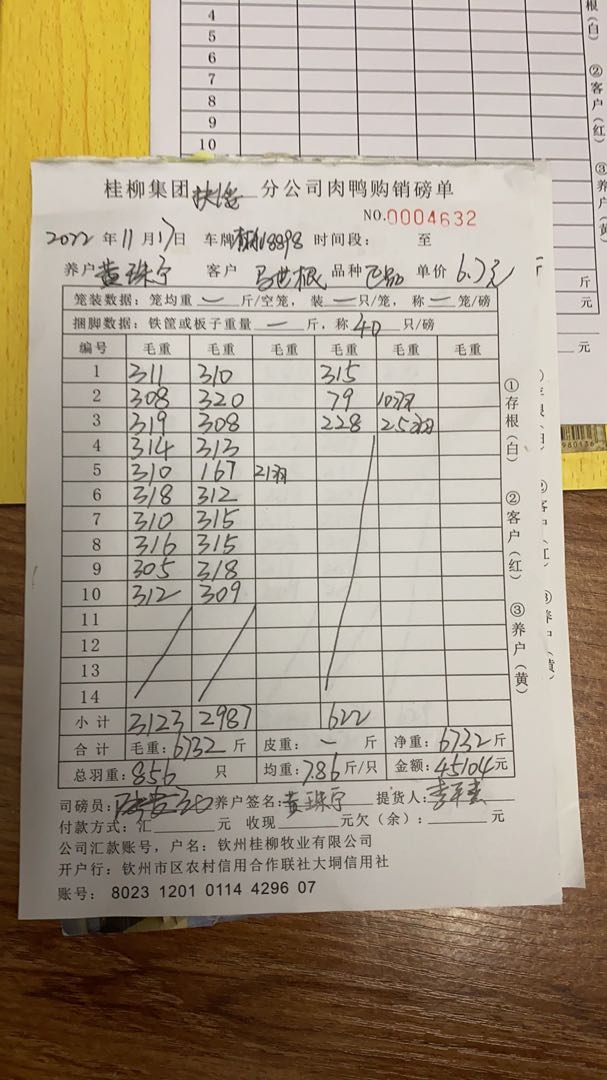 4
5
6
7
8
9
10
根（白） ②客户（红） ③养户（黄）
斤
元
元
桂柳集团 分公司肉鸭购销磅单
NO.0004632
2022年11月17日 车牌 8898 时间段： 至
养户 黄珠宁 客户 马世根 品种 单价 6.7元
笼装数据：笼均重 一 斤/空笼，装 一 只/笼，称 一 笼/磅
捆脚数据：铁筐或板子重量 一 斤，称 40 只/磅
编号 毛重 毛重 毛重 毛重 毛重 毛重
1 311 310 315
2 308 320 79 10羽
3 319 308 228 25羽
4 314 313
5 310 167 21羽
6 318 312
7 310 315
8 316 315
9 305 318
10 312 309
11
12
13
14
小计 3123 2987 622
合计 毛重：6732 斤 皮重：一 斤 净重：6732 斤
总羽重：856 只 均重：7.86 斤/只 金额：45104元
①存根（白） ②客户（红） ③养户（黄）
司磅员： 养户签名：黄珠宁 提货人：
付款方式：汇 元 收现 元欠（余）： 元
公司汇款账号，户名：钦州桂柳牧业有限公司
开户行：钦州市区农村信用合作联社大垌信用社
账号：8023 1201 0114 4296 07